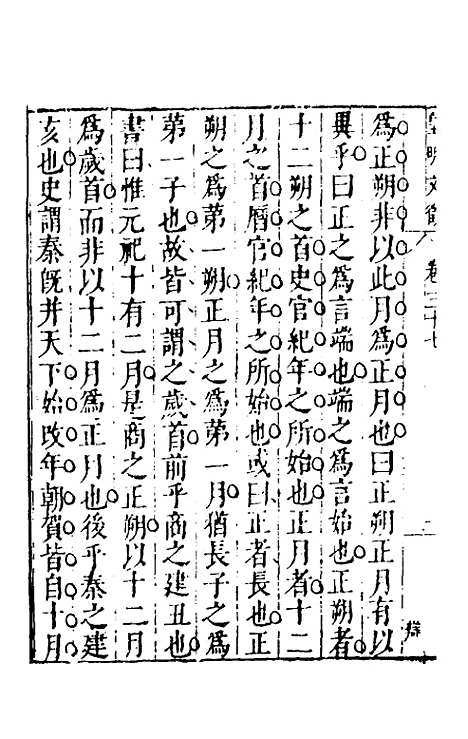 皇明文衡 卷二十七
爲正朔非以此月爲正月也曰正朔正月有以
異乎曰正之爲言端也端之爲言始也正朔者
十二朔之首史官紀年之所始也正月者十二
月之首曆官紀年之所始也或曰正者長也正
朔之爲第一朔正月之爲第一月猶長子之爲
第一子也故皆可謂之歲首前乎商之建丑也
書曰惟元祀十有二月是商之正朔以十二月
爲歲首而非以十二月爲正月也後乎秦之建
亥也史謂秦旣并天下始改年朝賀皆自十月